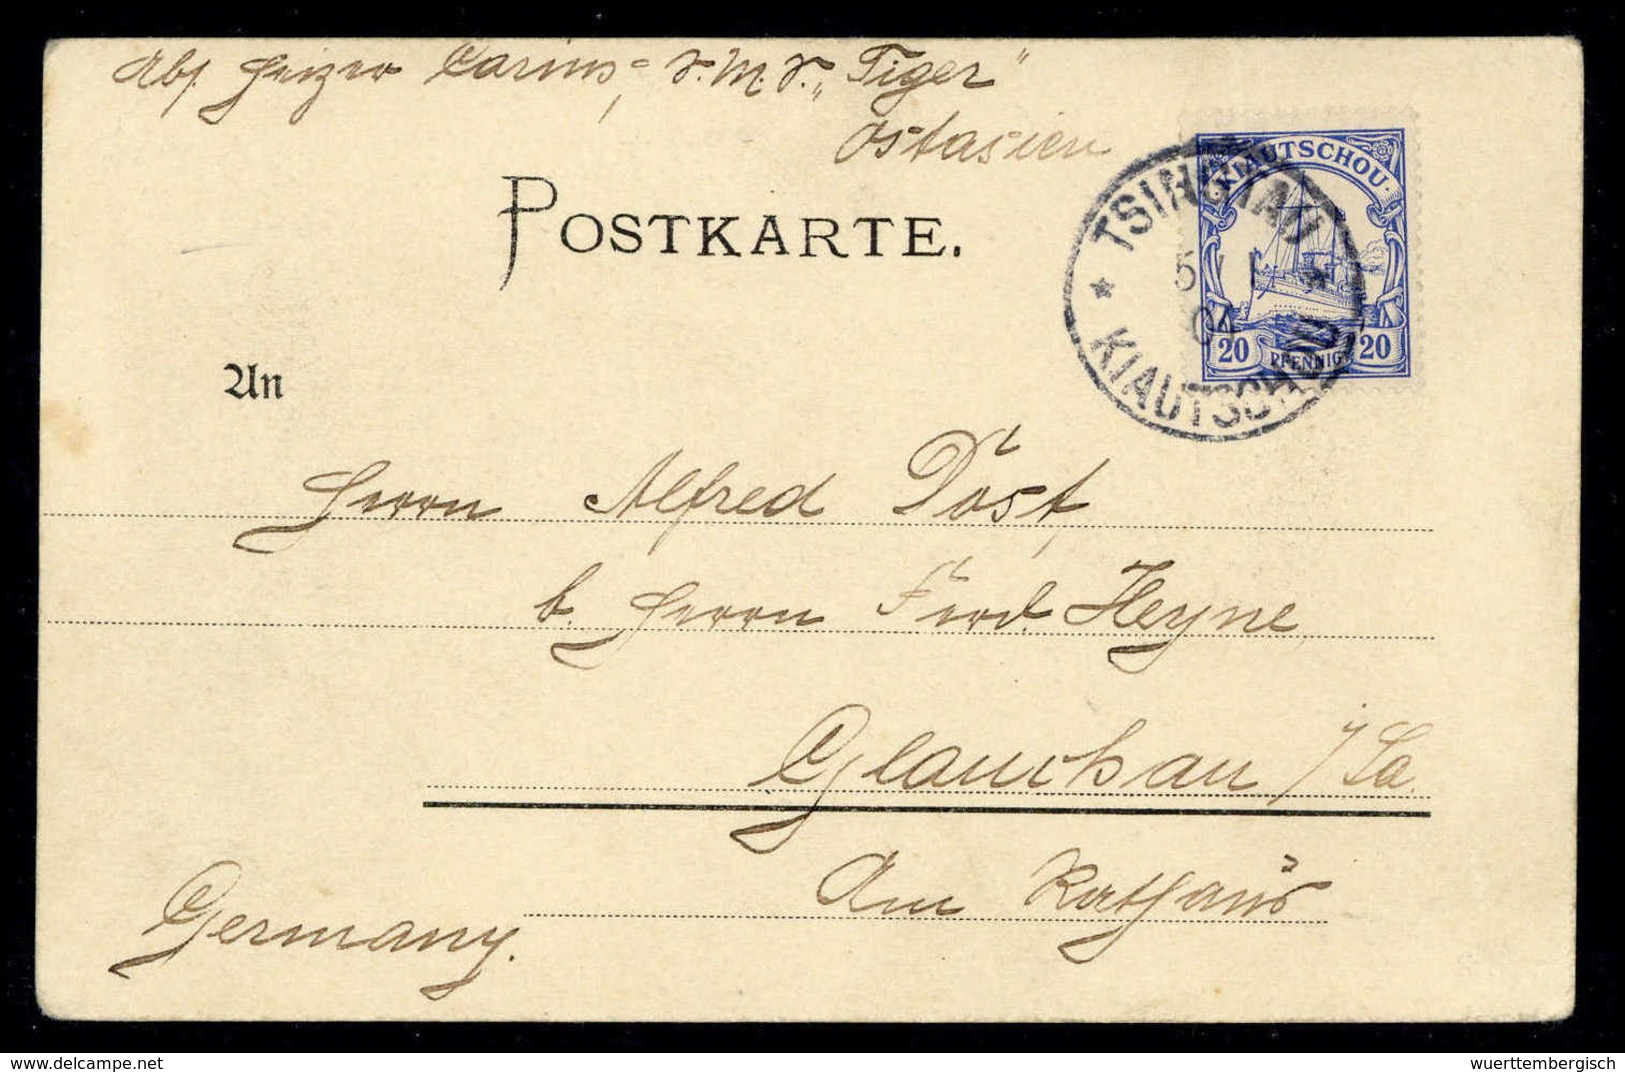 Abs. Heizer Carius, S.M.S. „Tiger“
Ostasien
POSTKARTE.
KIAUTSCHOU
20 PFENNIG 20
TSINGTAU
5/1
KIAUTSCHOU
An
Herrn Alfred Döst,
b. Herrn Ferd. Heyne
Glauchau i/Sa.
Am Rathaus
Germany.
www.delcampe.net
wuerttembergisch